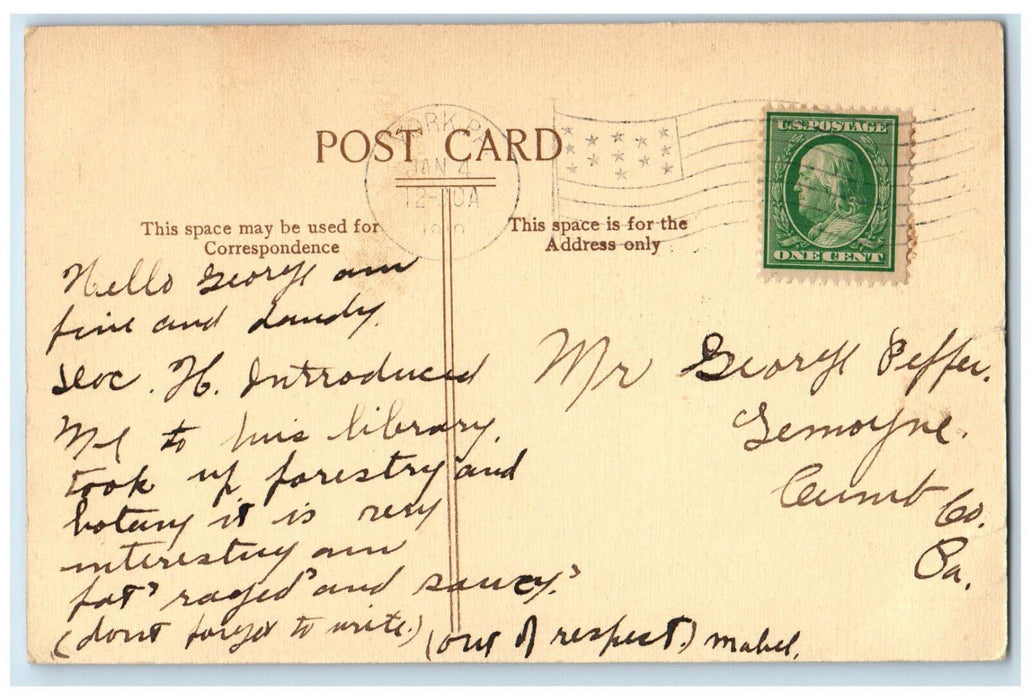 POST CARD
YORK PA
JAN 4
12-30A
U.S. POSTAGE
ONE CENT
This space may be used for
Correspondence
This space is for the
Address only
Hello George am
fine and dandy.
Doc. H. Introduced
Me to his library.
took up forestry and
botany it is very
interesting am
fat" raged" and saucy."
(dont forget to write.) (out of respect.) Mabel.
Mr George Peffer.
Lemoyne.
Cumb Co.
Pa.